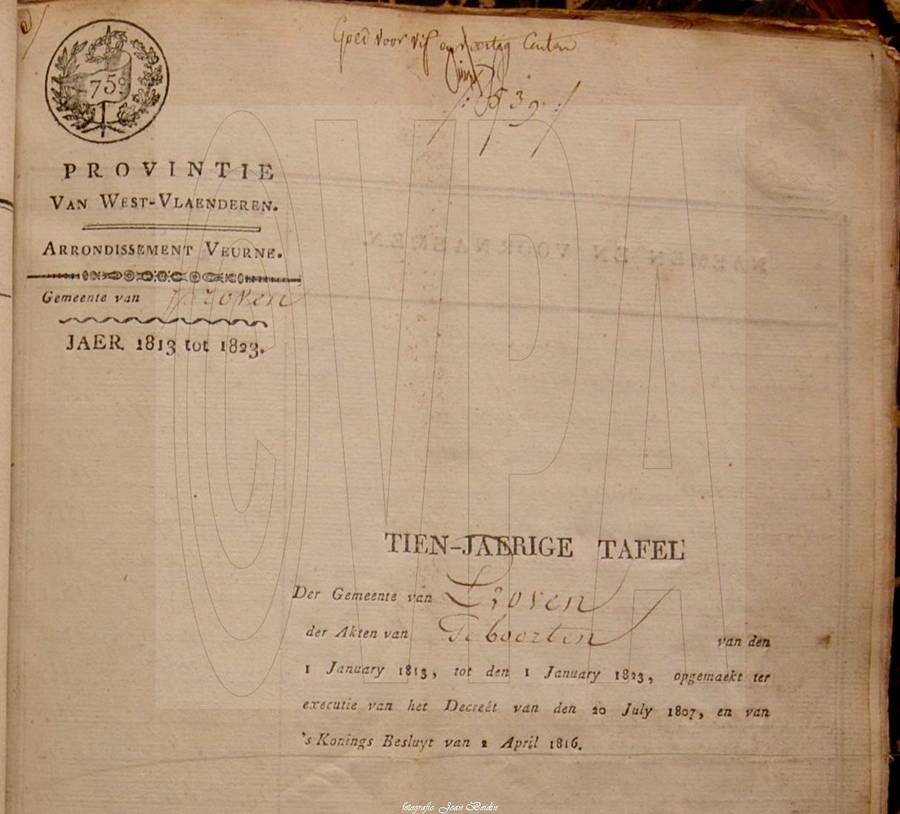 Goed voor vijf en veertig Centen
75c
539
PROVINTIE
VAN WEST-VLAENDEREN.
ARRONDISSEMENT VEURNE.
Gemeente van Proven
JAER 1813 tot 1823.
NAEMEN EN VOORNAEMEN.
CVPA
TIEN-JAERIGE TAFEL
Der Gemeente van Proven
der Akten van Geboorten van den
1 January 1813, tot den 1 January 1823, opgemaekt ter
executie van het Decreét van den 20 July 1807, en van
's Konings Besluyt van 2 April 1816.
fotografie: Joan Beidin